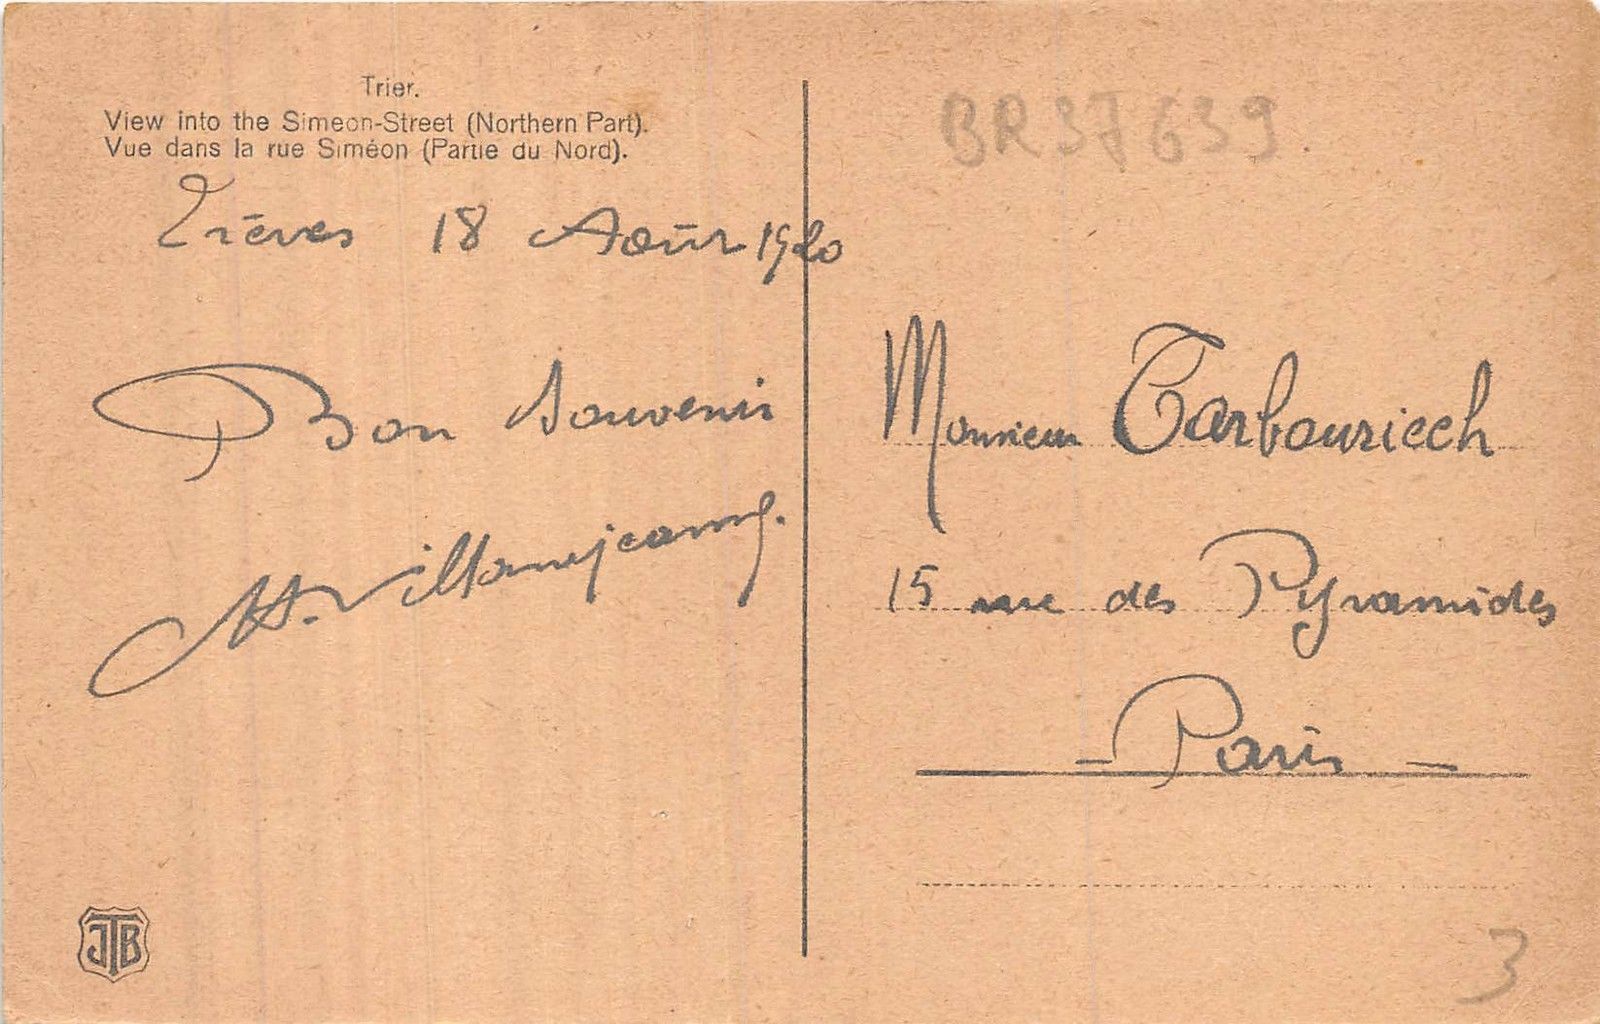 Trier.
View into the Simeon-Street (Northern Part).
Vue dans la rue Siméon (Partie du Nord).
Trèves 18 Août 1920
Bon Souvenir
BR37639.
Monsieur Tarbouriech
15 rue des Pyramides
- Paris -
JTB
3